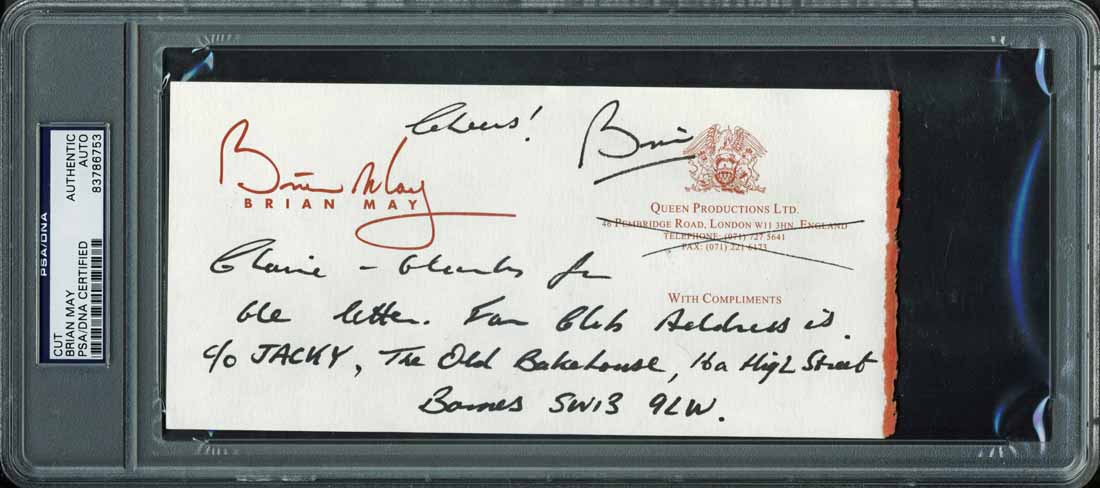 PSA/DNA
CUT
BRIAN MAY
PSA/DNA CERTIFIED
AUTHENTIC
AUTO
83786753
Cheers! Brian
Brian May
BRIAN MAY
QUEEN PRODUCTIONS LTD.
46 PEMBRIDGE ROAD, LONDON W11 3HN, ENGLAND
TELEPHONE: (071) 727 5641
FAX: (071) 221 6173
WITH COMPLIMENTS
Claire – thanks for
the letter. Fan Club Address is
c/o JACKY, The Old Bakehouse, 16a High Street
Barnes SW13 9LW.